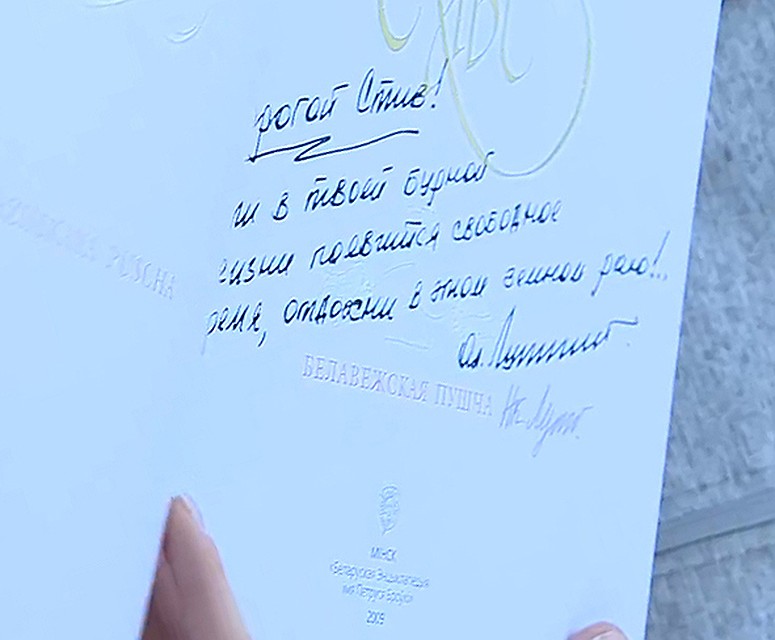 рогой Стив!
ли в твоей бурной
жизни появится свободное
ремя, отдохни в этом земном раю!..
PUSCHA
БЕЛАВЕЖСКАЯ ПУШЧА
МІНСК
«Беларуская Энцыклапедыя
імя Петруся Броўкі»
2009